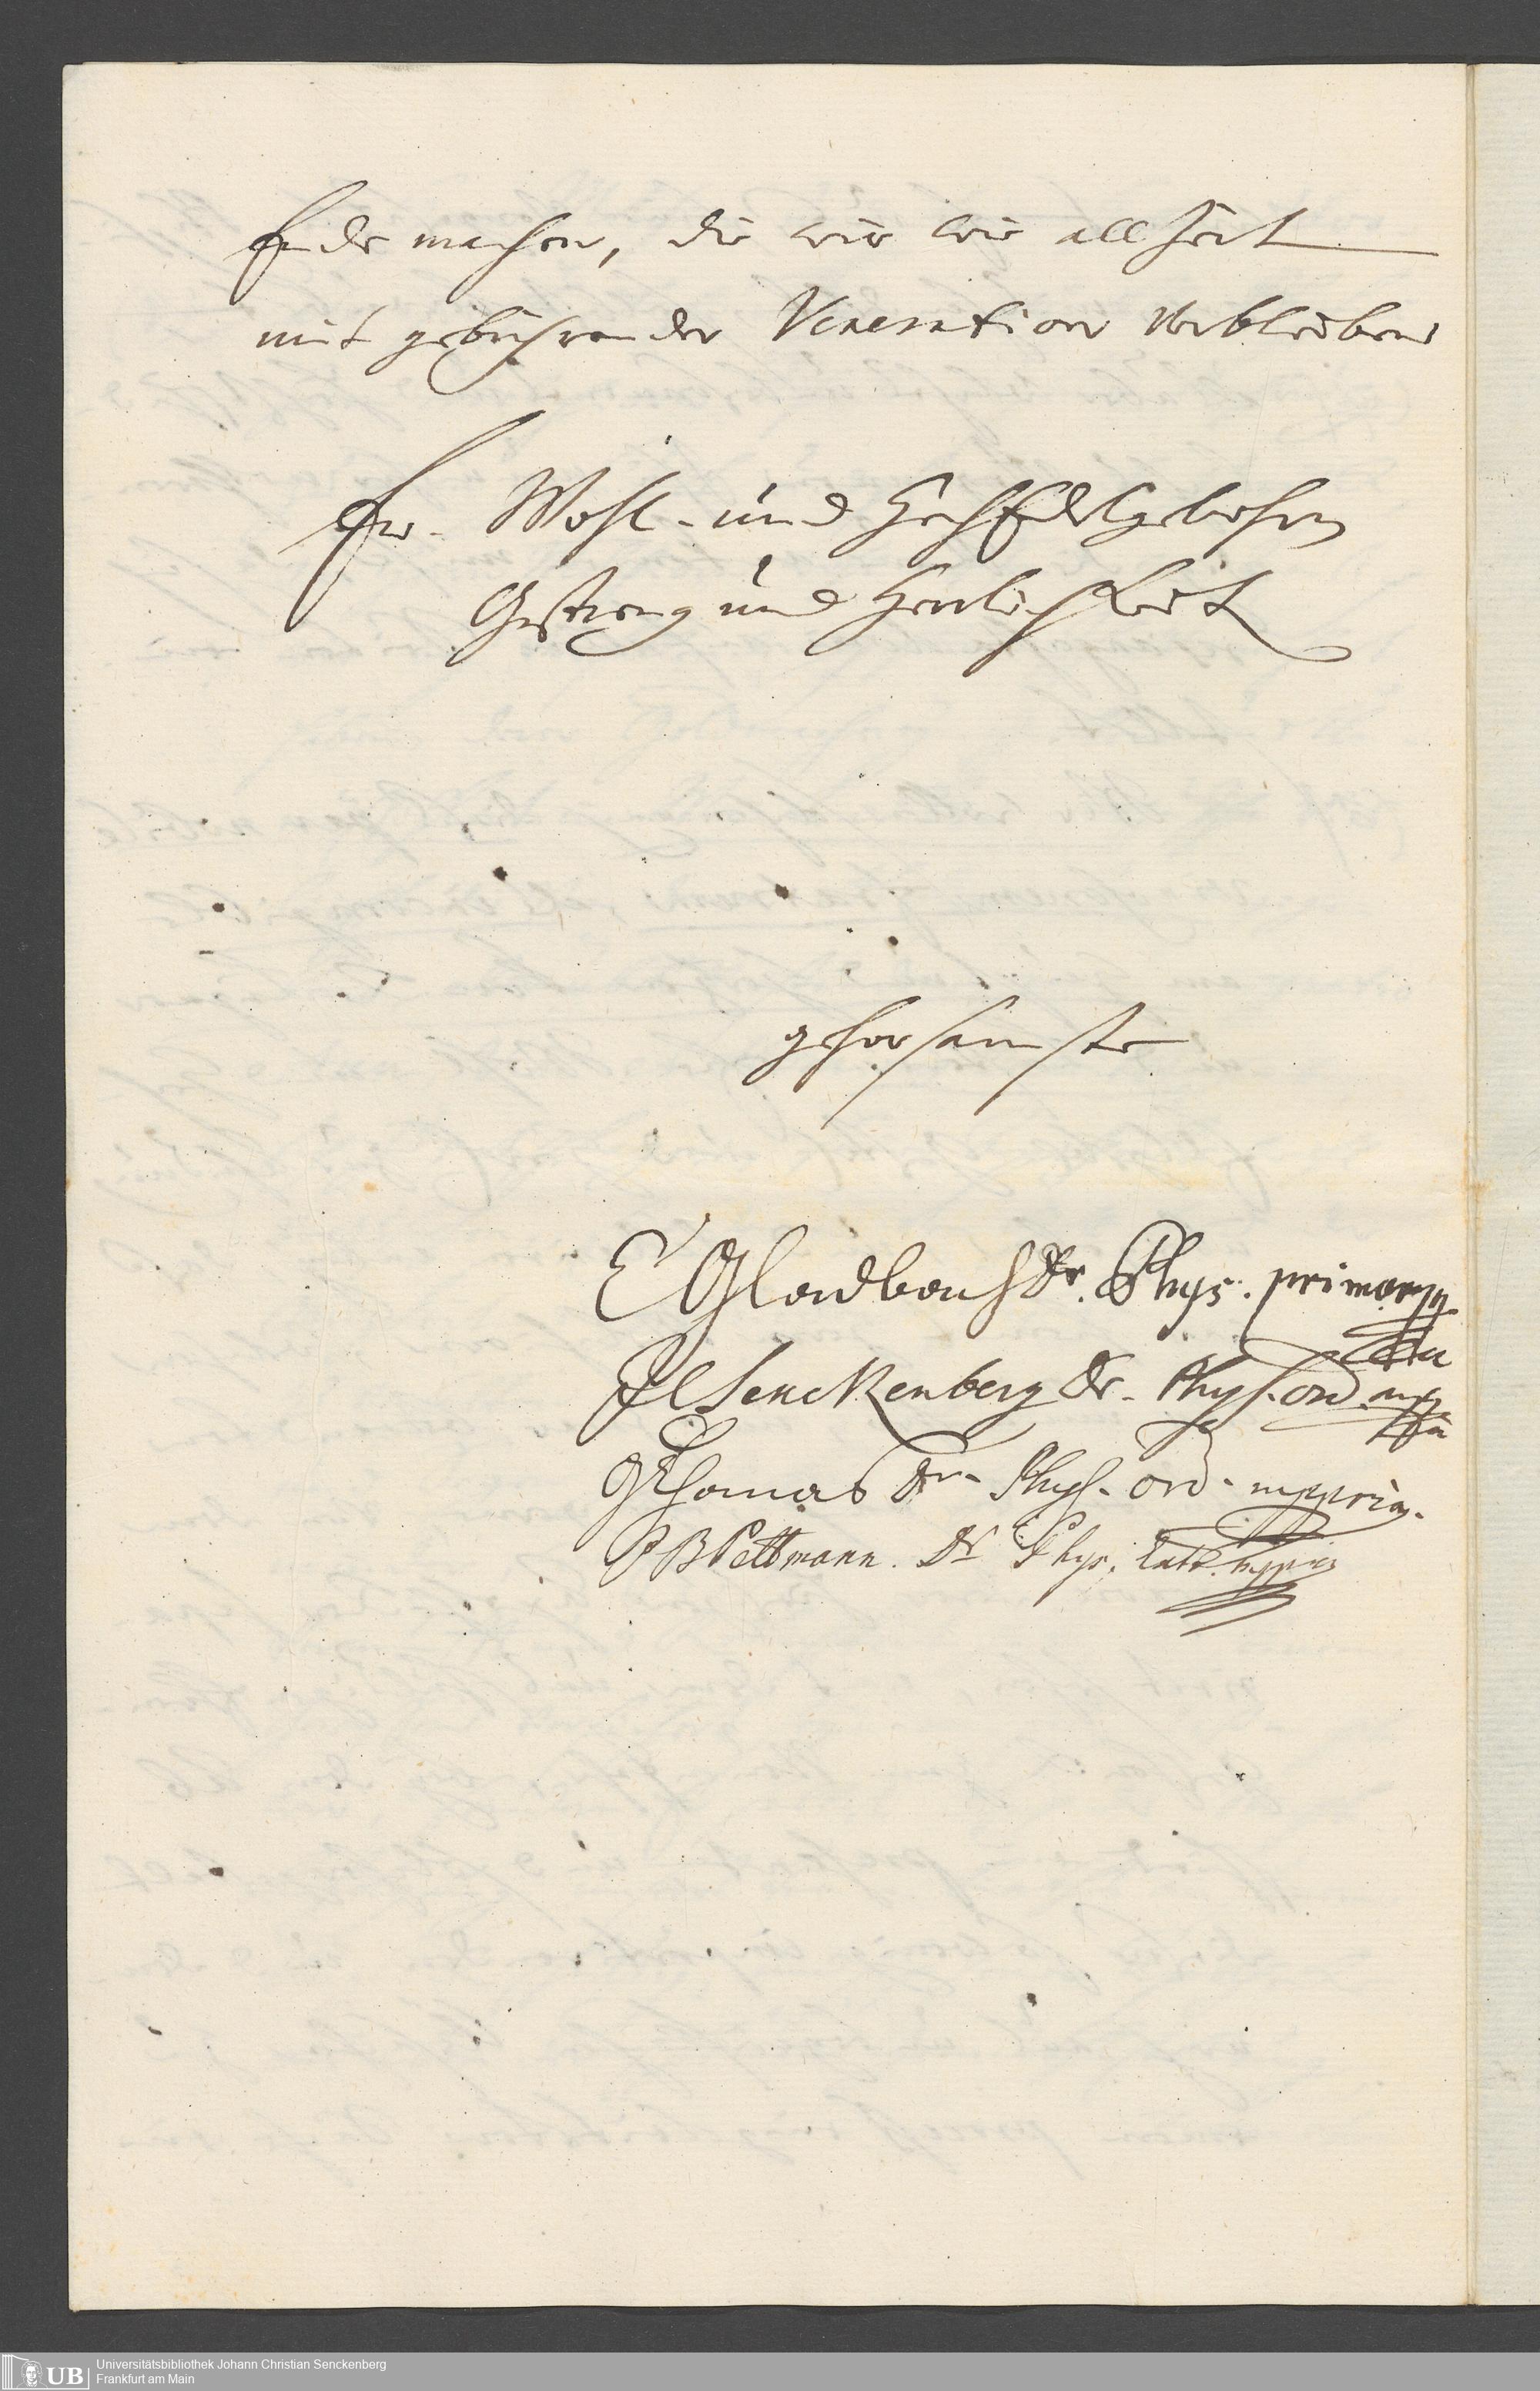 Ende machen, die wir wie allzeit
mit gebührender Veneration verbleiben
Ew. Wohl- und HochEdelgebohren
Gestreng und Herrlichkeit
gehorsamste
E Gladbach Dr. Phys. primary
JC Senckenberg Dr. Phys. ord. mppria
GThomas Dr. Phys. ord. mppria.
PBPettmann. Dr Phys. Extr. mppria
UB
Universitätsbibliothek Johann Christian Senckenberg
Frankfurt am Main